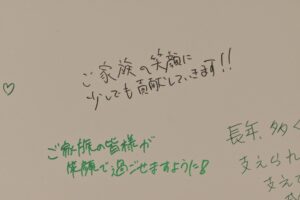 ご家族の笑顔に
少しでも貢献していきます!!
ご家族の皆様が
笑顔で過ごせますように
長年、多く
支えられ
支えて